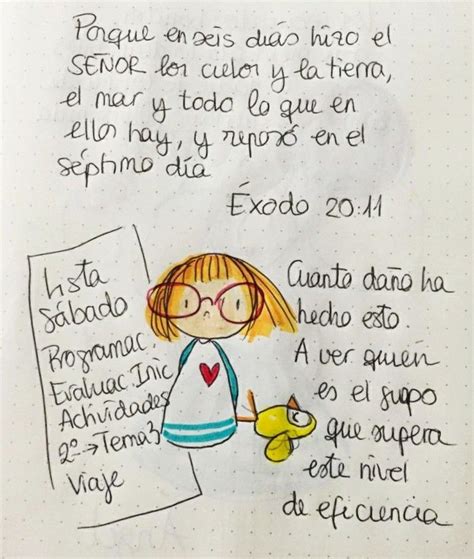 Porque en seis días hizo el
SEÑOR los cielos y la tierra,
el mar y todo lo que en
ellos hay, y reposó en el
séptimo día
Éxodo 20:11
Lista
Sábado
Programac.
Evaluac. Inic
Actividades
2º → Tema 3
Viaje
Cuanto daño ha
hecho esto.
A ver quién
es el guapo
que supera
este nivel
de eficiencia